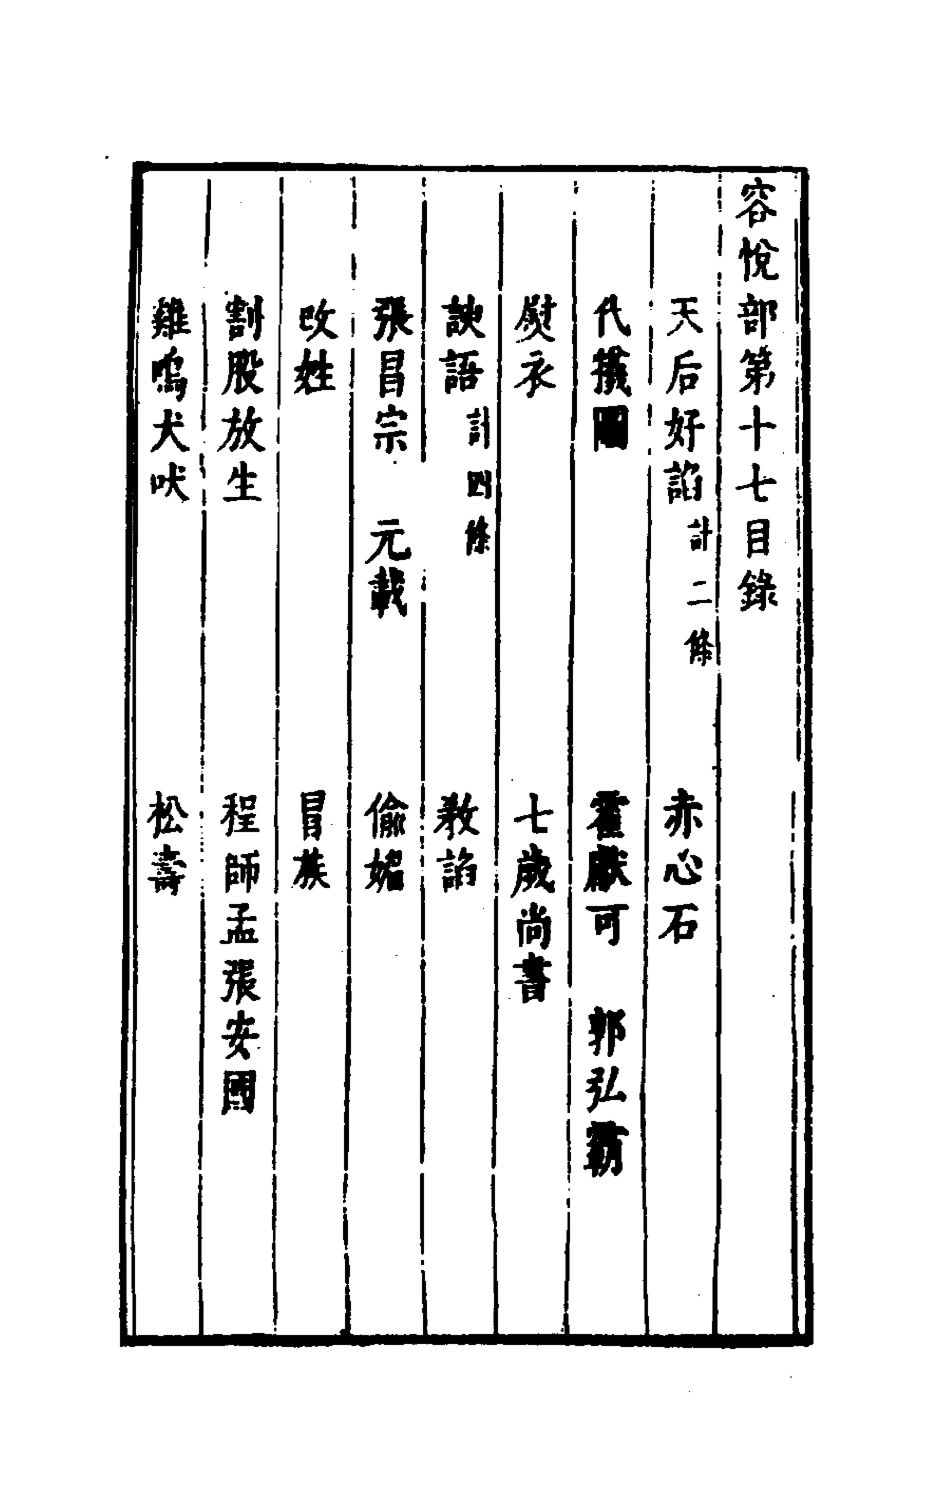 容悅部第十七目錄
天后好諂計二條　赤心石
代犧圖　霍獻可　郭弘霸
熨衣　七歲尚書
諛語計四條　教諂
張昌宗　元載　偷媚
改姓　冒族
割股放生　程師孟張安國
雞鳴犬吠　松壽